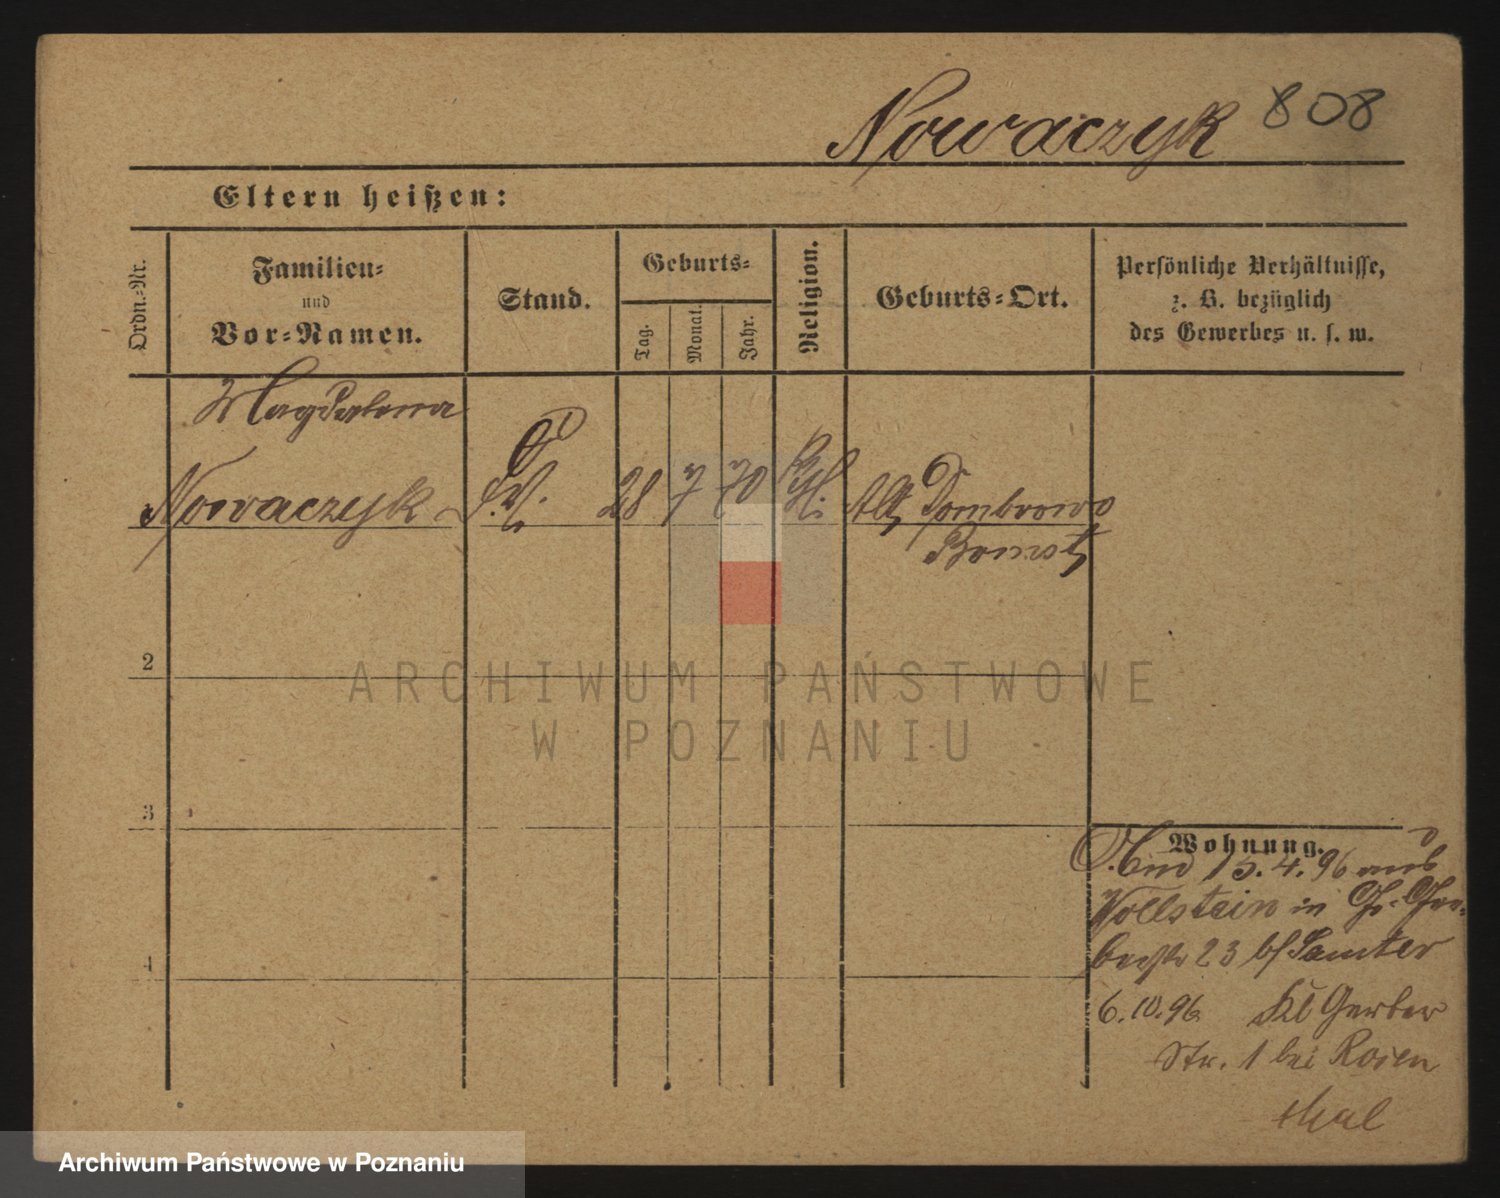 Nowaczyk 808
Eltern heißen:
Ordn.-Nr.
Familien-
und
Vor-Namen.
Stand.
Geburts-
Tag.
Monat.
Jahr.
Religion.
Geburts-Ort.
Persönliche Verhältnisse,
z. B. bezüglich
des Gewerbes u. s. w.
Magdalena
Nowaczyk
28 7 70
Alt Dombrowo
Bomst
2
3
4
Wohnung.
15.4.96 aus
Wollstein in Gr. Ger-
berstr 23 b/ Samter
6.10.96 Kl Gerber
Str. 1 bei Rosen
thal
ARCHIWUM PAŃSTWOWE
W POZNANIU
Archiwum Państwowe w Poznaniu